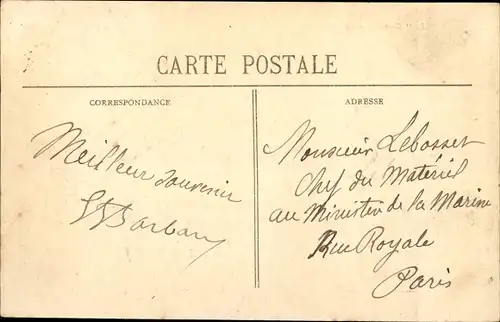 CARTE POSTALE
CORRESPONDANCE
Meilleur souvenir
ADRESSE
Monsieur Lebosser
Chef du Matériel
au Ministère de la Marine
Rue Royale
Paris